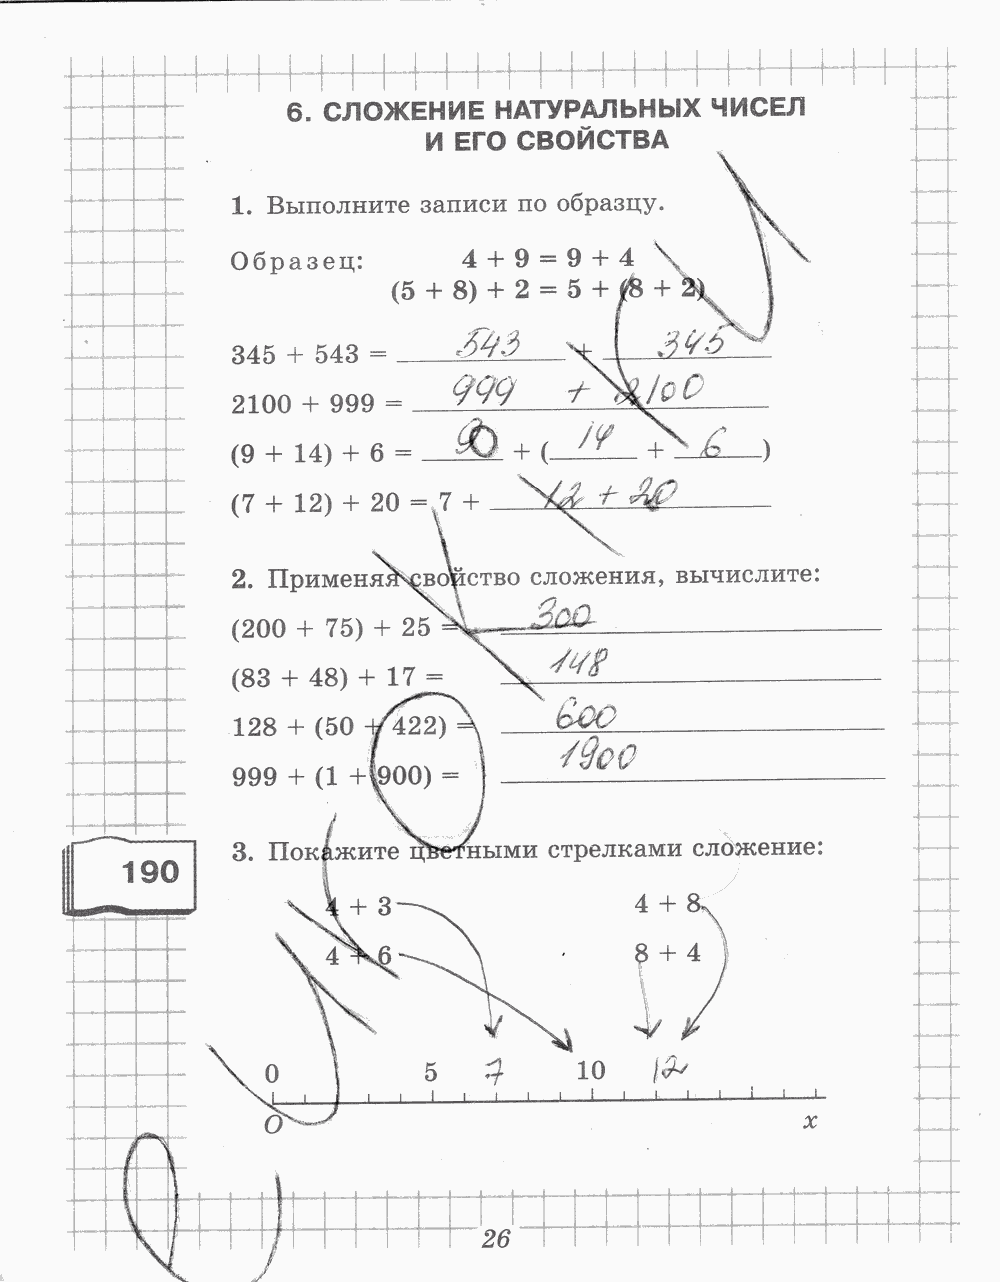 6. СЛОЖЕНИЕ НАТУРАЛЬНЫХ ЧИСЕЛ
И ЕГО СВОЙСТВА
1. Выполните записи по образцу.
Образец: 4 + 9 = 9 + 4
(5 + 8) + 2 = 5 + (8 + 2)
345 + 543 = 543 + 345
2100 + 999 = 999 + 2100
(9 + 14) + 6 = + ( 14 + 6 )
(7 + 12) + 20 = 7 + 12 + 20
2. Применяя свойство сложения, вычислите:
(200 + 75) + 25 = 300
(83 + 48) + 17 = 148
128 + (50 + 422) = 600
999 + (1 + 900) = 1900
3. Покажите цветными стрелками сложение:
190
4 + 3 4 + 8
4 + 6 8 + 4
0 5 7 10 12
O x
26